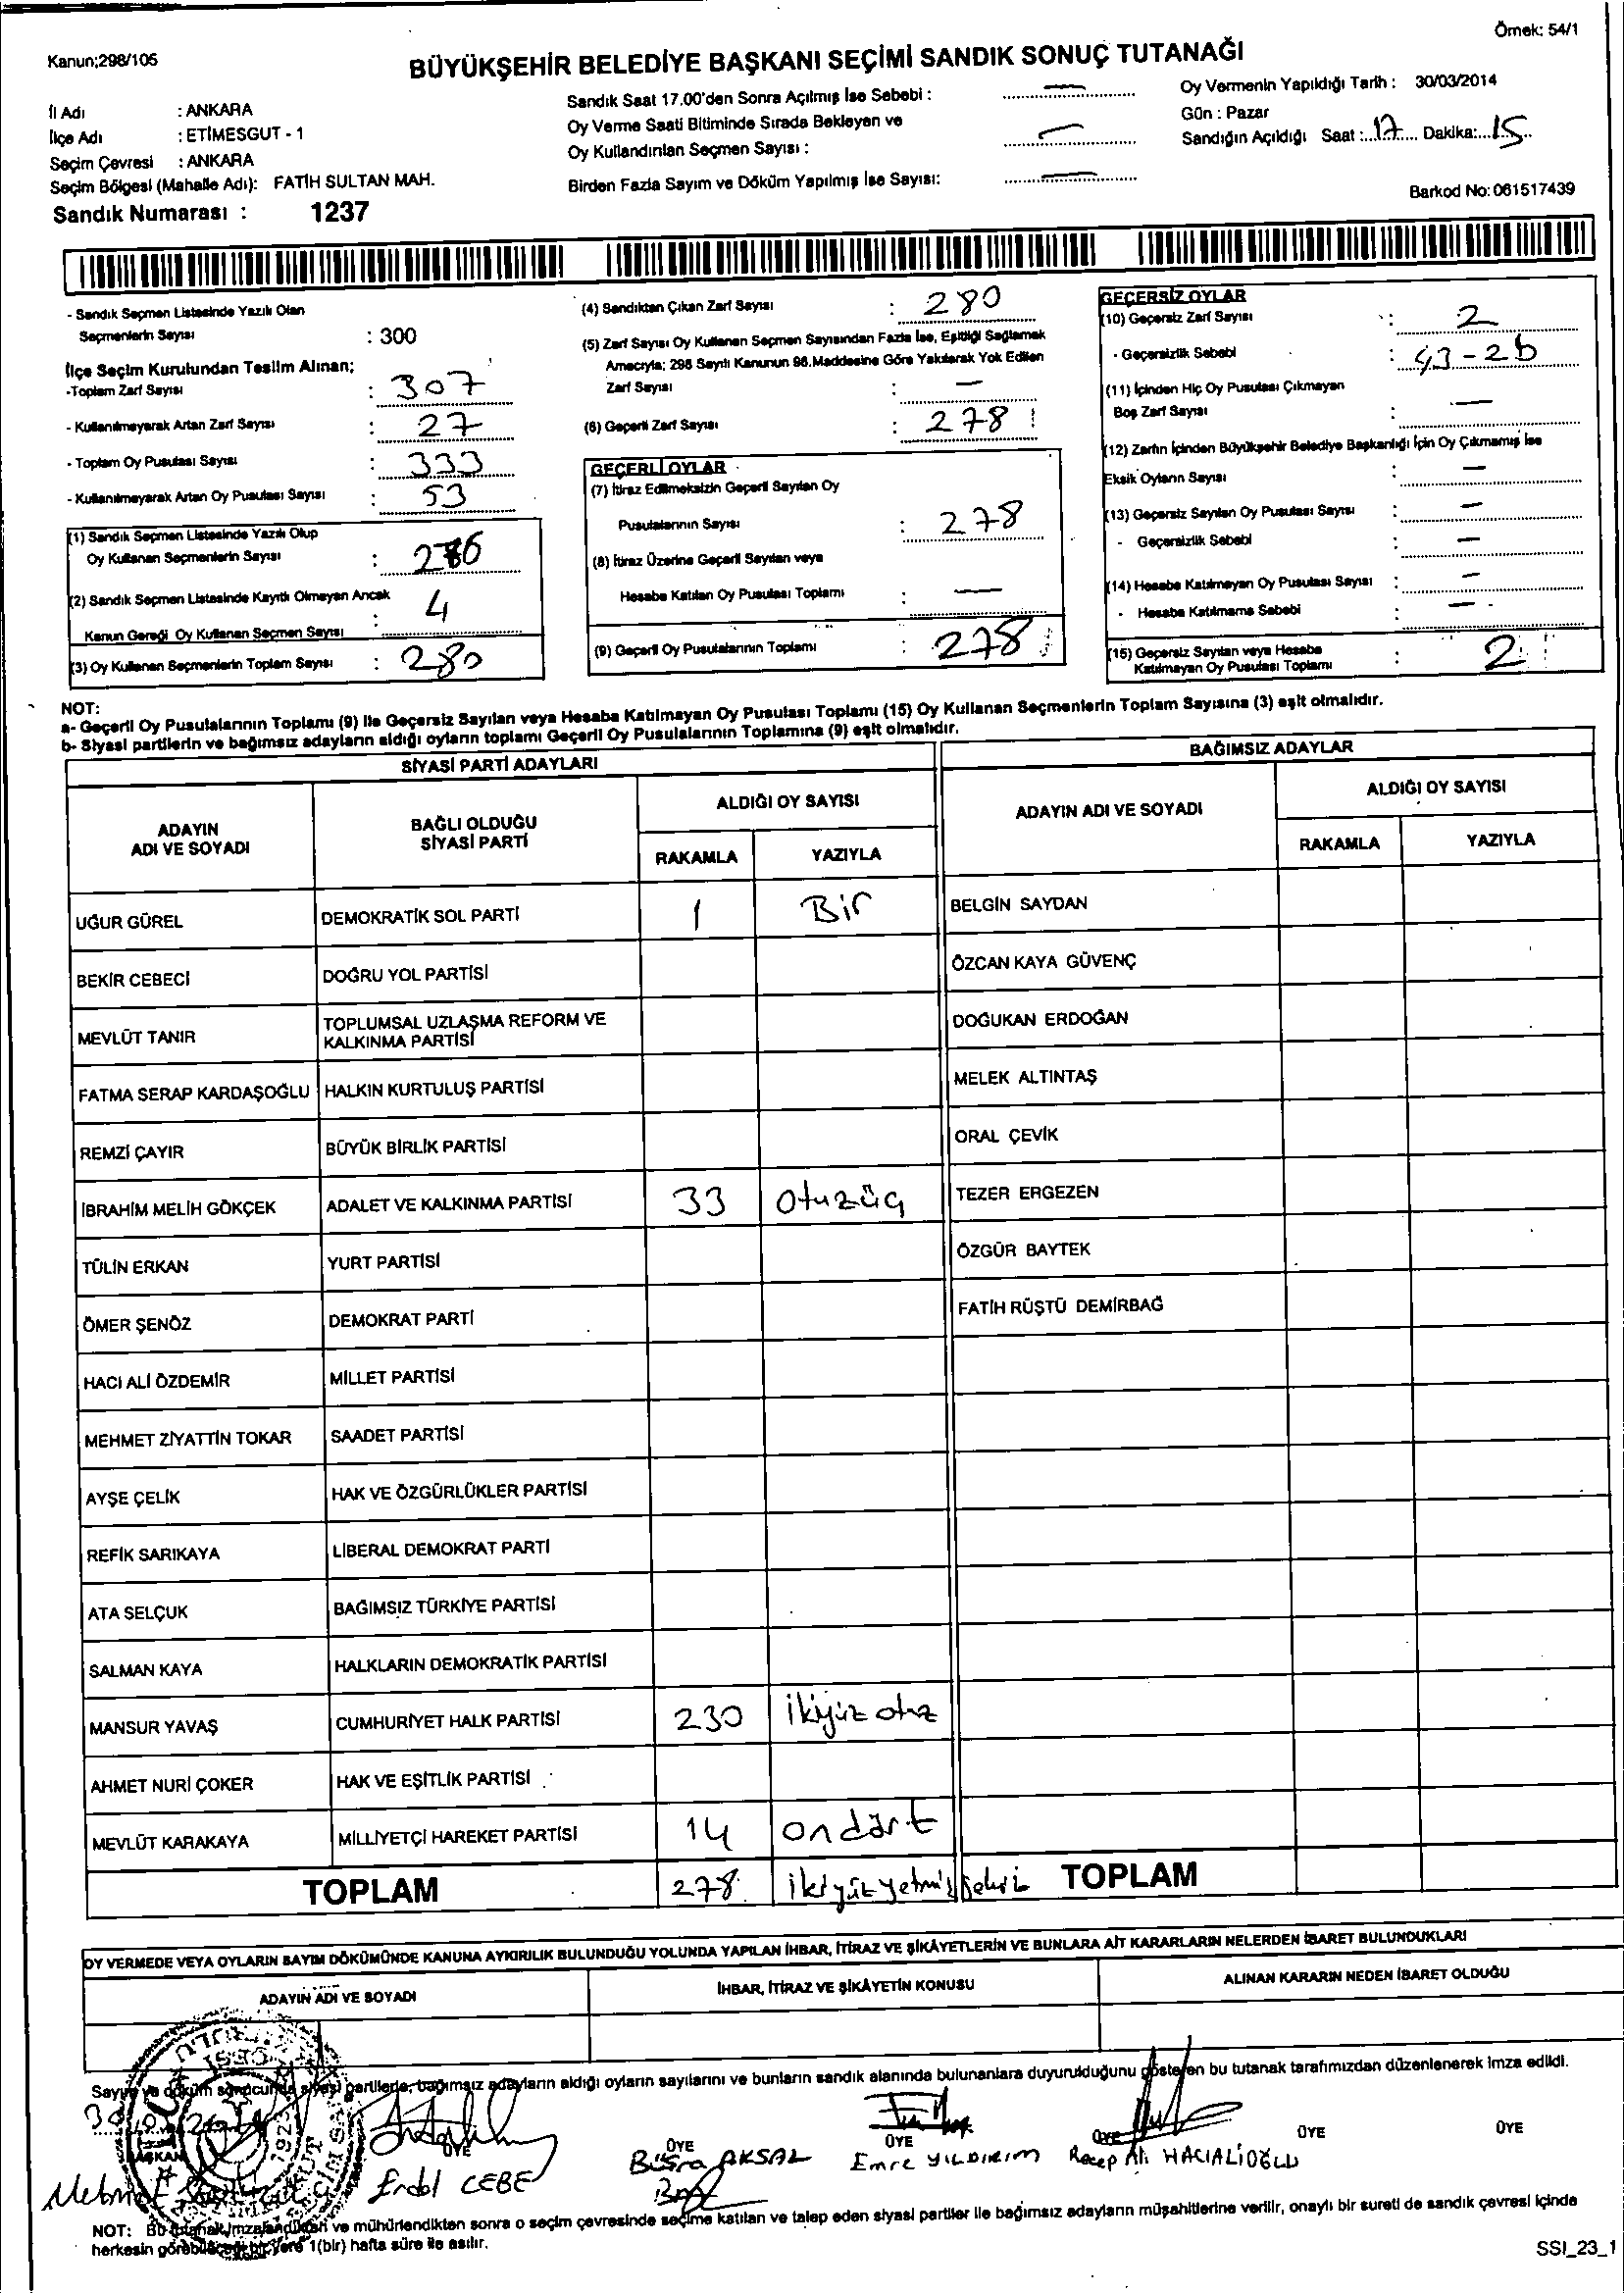 Örnek: 54/1
Kanun;298/105
BÜYÜKŞEHİR BELEDİYE BAŞKANI SEÇİMİ SANDIK SONUÇ TUTANAĞI
İl Adı : ANKARA
İlçe Adı : ETİMESGUT - 1
Seçim Çevresi : ANKARA
Seçim Bölgesi (Mahalle Adı): FATİH SULTAN MAH.
Sandık Numarası : 1237
Sandık Saat 17.00'den Sonra Açılmış İse Sebebi : —
Oy Verme Saati Bitiminde Sırada Bekleyen ve
Oy Kullandırılan Seçmen Sayısı : —
Birden Fazla Sayım ve Döküm Yapılmış İse Sayısı: —
Oy Vermenin Yapıldığı Tarih : 30/03/2014
Gün : Pazar
Sandığın Açıldığı Saat : 17 Dakika: 15
Barkod No: 061517439
- Sandık Seçmen Listesinde Yazılı Olan
Seçmenlerin Sayısı : 300
İlçe Seçim Kurulundan Teslim Alınan;
-Toplam Zarf Sayısı : 307
- Kullanılmayarak Artan Zarf Sayısı : 27
- Toplam Oy Pusulası Sayısı : 333
- Kullanılmayarak Artan Oy Pusulası Sayısı : 53
(1) Sandık Seçmen Listesinde Yazılı Olup
Oy Kullanan Seçmenlerin Sayısı : 276
(2) Sandık Seçmen Listesinde Kayıtlı Olmayan Ancak
Kanun Gereği Oy Kullanan Seçmen Sayısı : 4
(3) Oy Kullanan Seçmenlerin Toplam Sayısı : 280
(4) Sandıktan Çıkan Zarf Sayısı : 280
(5) Zarf Sayısı Oy Kullanan Seçmen Sayısından Fazla İse, Eşitliği Sağlamak
Amacıyla; 298 Sayılı Kanunun 98.Maddesine Göre Yakılarak Yok Edilen
Zarf Sayısı : —
(6) Geçerli Zarf Sayısı : 278
GEÇERLİ OYLAR
(7) İtiraz Edilmeksizin Geçerli Sayılan Oy
Pusulalarının Sayısı : 278
(8) İtiraz Üzerine Geçerli Sayılan veya
Hesaba Katılan Oy Pusulası Toplamı : —
(9) Geçerli Oy Pusulalarının Toplamı : 278
GEÇERSİZ OYLAR
(10) Geçersiz Zarf Sayısı : 2
- Geçersizlik Sebebi : 43-2b
(11) İçinden Hiç Oy Pusulası Çıkmayan
Boş Zarf Sayısı : —
(12) Zarfın İçinden Büyükşehir Belediye Başkanlığı İçin Oy Çıkmamış İse
Eksik Oyların Sayısı : —
(13) Geçersiz Sayılan Oy Pusulası Sayısı : —
- Geçersizlik Sebebi : —
(14) Hesaba Katılmayan Oy Pusulası Sayısı : —
- Hesaba Katılmama Sebebi : —
(15) Geçersiz Sayılan veya Hesaba
Katılmayan Oy Pusulası Toplamı : 2
NOT:
a- Geçerli Oy Pusulalarının Toplamı (9) İle Geçersiz Sayılan veya Hesaba Katılmayan Oy Pusulası Toplamı (15) Oy Kullanan Seçmenlerin Toplam Sayısına (3) eşit olmalıdır.
b- Siyasi partilerin ve bağımsız adayların aldığı oyların toplamı Geçerli Oy Pusulalarının Toplamına (9) eşit olmalıdır.
SİYASİ PARTİ ADAYLARI
BAĞIMSIZ ADAYLAR
ADAYIN ADI VE SOYADI
BAĞLI OLDUĞU SİYASİ PARTİ
ALDIĞI OY SAYISI
RAKAMLA YAZIYLA
ADAYIN ADI VE SOYADI
ALDIĞI OY SAYISI
RAKAMLA YAZIYLA
UĞUR GÜREL DEMOKRATİK SOL PARTİ 1 Bir BELGİN SAYDAN
BEKİR CEBECİ DOĞRU YOL PARTİSİ ÖZCAN KAYA GÜVENÇ
MEVLÜT TANIR TOPLUMSAL UZLAŞMA REFORM VE KALKINMA PARTİSİ DOĞUKAN ERDOĞAN
FATMA SERAP KARDAŞOĞLU HALKIN KURTULUŞ PARTİSİ MELEK ALTINTAŞ
REMZİ ÇAYIR BÜYÜK BİRLİK PARTİSİ ORAL ÇEVİK
İBRAHİM MELİH GÖKÇEK ADALET VE KALKINMA PARTİSİ 33 Otuzüç TEZER ERGEZEN
TÜLİN ERKAN YURT PARTİSİ ÖZGÜR BAYTEK
ÖMER ŞENÖZ DEMOKRAT PARTİ FATİH RÜŞTÜ DEMİRBAĞ
HACI ALİ ÖZDEMİR MİLLET PARTİSİ
MEHMET ZİYATTİN TOKAR SAADET PARTİSİ
AYŞE ÇELİK HAK VE ÖZGÜRLÜKLER PARTİSİ
REFİK SARIKAYA LİBERAL DEMOKRAT PARTİ
ATA SELÇUK BAĞIMSIZ TÜRKİYE PARTİSİ
SALMAN KAYA HALKLARIN DEMOKRATİK PARTİSİ
MANSUR YAVAŞ CUMHURİYET HALK PARTİSİ 230 ikiyüz otuz
AHMET NURİ ÇOKER HAK VE EŞİTLİK PARTİSİ
MEVLÜT KARAKAYA MİLLİYETÇİ HAREKET PARTİSİ 14 ondört
TOPLAM 278 ikiyüz yetmiş sekiz TOPLAM
OY VERMEDE VEYA OYLARIN SAYIM DÖKÜMÜNDE KANUNA AYKIRILIK BULUNDUĞU YOLUNDA YAPILAN İHBAR, İTİRAZ VE ŞİKÂYETLERİN VE BUNLARA AİT KARARLARIN NELERDEN İBARET BULUNDUKLARI
ADAYIN ADI VE SOYADI İHBAR, İTİRAZ VE ŞİKÂYETİN KONUSU ALINAN KARARIN NEDEN İBARET OLDUĞU
Sayım ve döküm sonucunda siyasi partilerle, bağımsız adayların aldığı oyların sayılarını ve bunların sandık alanında bulunanlara duyurulduğunu gösteren bu tutanak tarafımızdan düzenlenerek imza edildi.
BAŞKAN ÜYE ÜYE ÜYE ÜYE ÜYE ÜYE
Mehmet Erdal CEBE Büşra AKSAL Emre YILDIRIM Recep Ali HACIALİOĞLU
NOT: Bu tutanak imzalandıktan ve mühürlendikten sonra o seçim çevresinde seçime katılan ve talep eden siyasi partiler ile bağımsız adayların müşahitlerine verilir, onaylı bir sureti de sandık çevresi içinde
herkesin görebileceği bir yere 1(bir) hafta süre ile asılır.
SSI_23_1